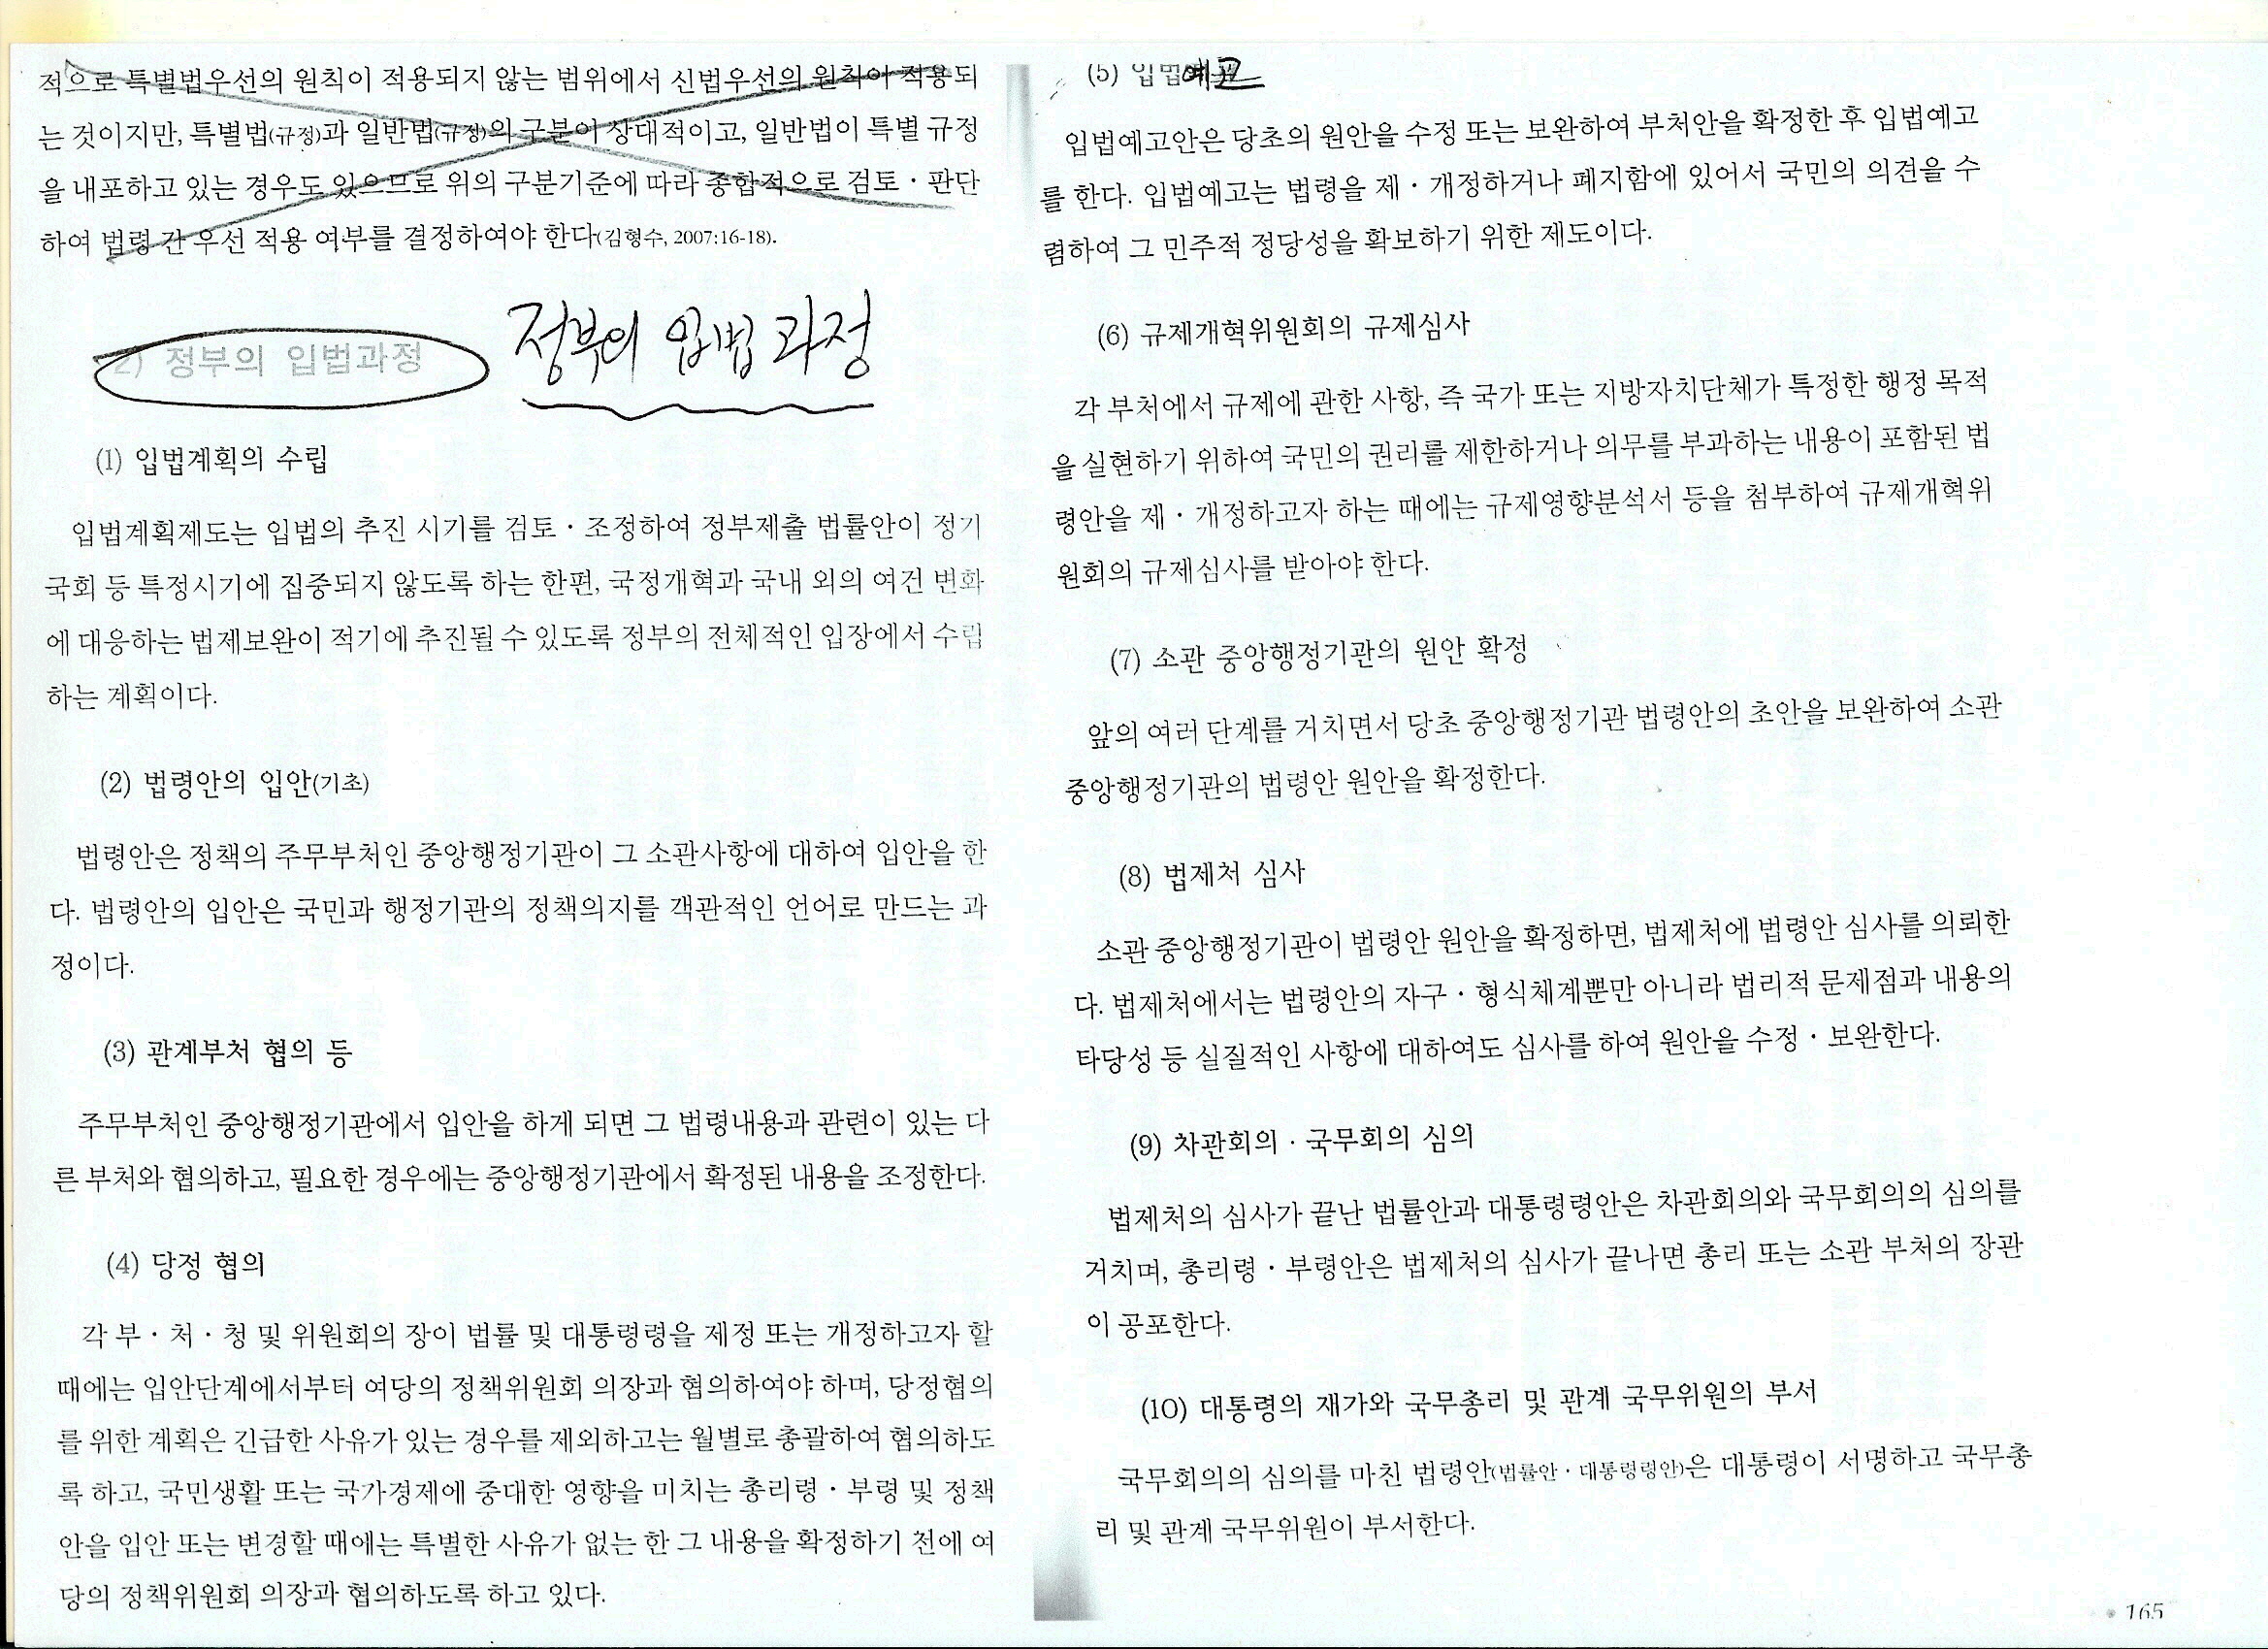 적으로 특별법우선의 원칙이 적용되지 않는 범위에서 신법우선의 원칙이 적용되
는 것이지만, 특별법(규정)과 일반법(규정)의 구분이 상대적이고, 일반법이 특별 규정
을 내포하고 있는 경우도 있으므로 위의 구분기준에 따라 종합적으로 검토·판단
하여 법령 간 우선 적용 여부를 결정하여야 한다(김형수, 2007:16-18).
2) 정부의 입법과정
정부의 입법 과정
(1) 입법계획의 수립
입법계획제도는 입법의 추진 시기를 검토·조정하여 정부제출 법률안이 정기
국회 등 특정시기에 집중되지 않도록 하는 한편, 국정개혁과 국내 외의 여건 변화
에 대응하는 법제보완이 적기에 추진될 수 있도록 정부의 전체적인 입장에서 수립
하는 계획이다.
(2) 법령안의 입안(기초)
법령안은 정책의 주무부처인 중앙행정기관이 그 소관사항에 대하여 입안을 한
다. 법령안의 입안은 국민과 행정기관의 정책의지를 객관적인 언어로 만드는 과
정이다.
(3) 관계부처 협의 등
주무부처인 중앙행정기관에서 입안을 하게 되면 그 법령내용과 관련이 있는 다
른 부처와 협의하고, 필요한 경우에는 중앙행정기관에서 확정된 내용을 조정한다.
(4) 당정 협의
각 부·처·청 및 위원회의 장이 법률 및 대통령령을 제정 또는 개정하고자 할
때에는 입안단계에서부터 여당의 정책위원회 의장과 협의하여야 하며, 당정협의
를 위한 계획은 긴급한 사유가 있는 경우를 제외하고는 월별로 총괄하여 협의하도
록 하고, 국민생활 또는 국가경제에 중대한 영향을 미치는 총리령·부령 및 정책
안을 입안 또는 변경할 때에는 특별한 사유가 없는 한 그 내용을 확정하기 전에 여
당의 정책위원회 의장과 협의하도록 하고 있다.
(5) 입법예고
입법예고안은 당초의 원안을 수정 또는 보완하여 부처안을 확정한 후 입법예고
를 한다. 입법예고는 법령을 제·개정하거나 폐지함에 있어서 국민의 의견을 수
렴하여 그 민주적 정당성을 확보하기 위한 제도이다.
(6) 규제개혁위원회의 규제심사
각 부처에서 규제에 관한 사항, 즉 국가 또는 지방자치단체가 특정한 행정 목적
을 실현하기 위하여 국민의 권리를 제한하거나 의무를 부과하는 내용이 포함된 법
령안을 제·개정하고자 하는 때에는 규제영향분석서 등을 첨부하여 규제개혁위
원회의 규제심사를 받아야 한다.
(7) 소관 중앙행정기관의 원안 확정
앞의 여러 단계를 거치면서 당초 중앙행정기관 법령안의 초안을 보완하여 소관
중앙행정기관의 법령안 원안을 확정한다.
(8) 법제처 심사
소관 중앙행정기관이 법령안 원안을 확정하면, 법제처에 법령안 심사를 의뢰한
다. 법제처에서는 법령안의 자구·형식체계뿐만 아니라 법리적 문제점과 내용의
타당성 등 실질적인 사항에 대하여도 심사를 하여 원안을 수정·보완한다.
(9) 차관회의·국무회의 심의
법제처의 심사가 끝난 법률안과 대통령령안은 차관회의와 국무회의의 심의를
거치며, 총리령·부령안은 법제처의 심사가 끝나면 총리 또는 소관 부처의 장관
이 공포한다.
(10) 대통령의 재가와 국무총리 및 관계 국무위원의 부서
국무회의의 심의를 마친 법령안(법률안·대통령령안)은 대통령이 서명하고 국무총
리 및 관계 국무위원이 부서한다.
165